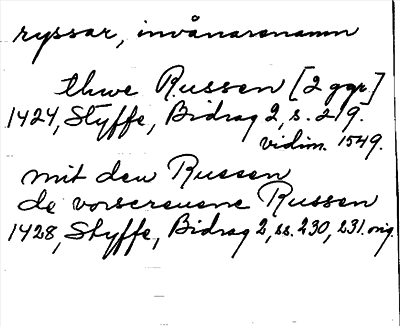 ryssar, invånarenamn
thwe Russen [2 ggr.]
1424, Styffe, Bidrag 2, s. 219.
vidim. 1549.
mit den Russen
de vorscreuene Russen
1428, Styffe, Bidrag 2, ss. 230, 231. orig.